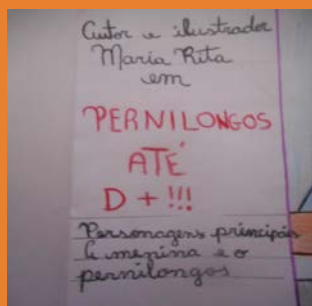 Autor e ilustrador
Maria Rita
em
PERNILONGOS
ATÉ
D + !!!
Personagens principais
A menina e o
pernilongos